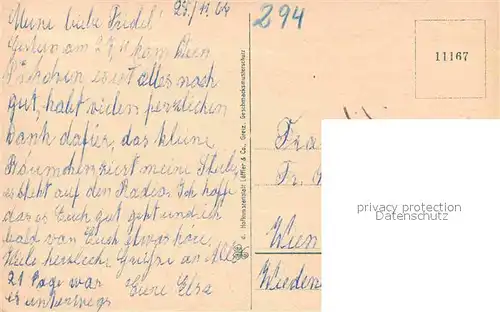 29/11.64
Meine liebe Friedel!
Gestern am 27.11 kam Dein
es ist alles noch
gut, habt vielen herzlichen
Dank dafür, das kleine
Bäumchen ziert meine Stube
es steht auf den Radio. Ich hoffe
das es Euch gut geht und ich
bald von Euch etwas höre,
Viele herzliche Grüße an Alle
21 Tage war
es unterwegs Eure Elsa
294
11167
Hoftwasserstahl Löffler & Co., Greiz. Geschmacksmusterschutz
Fra
Fr.
Wien
Wieden
privacy protection
Datenschutz